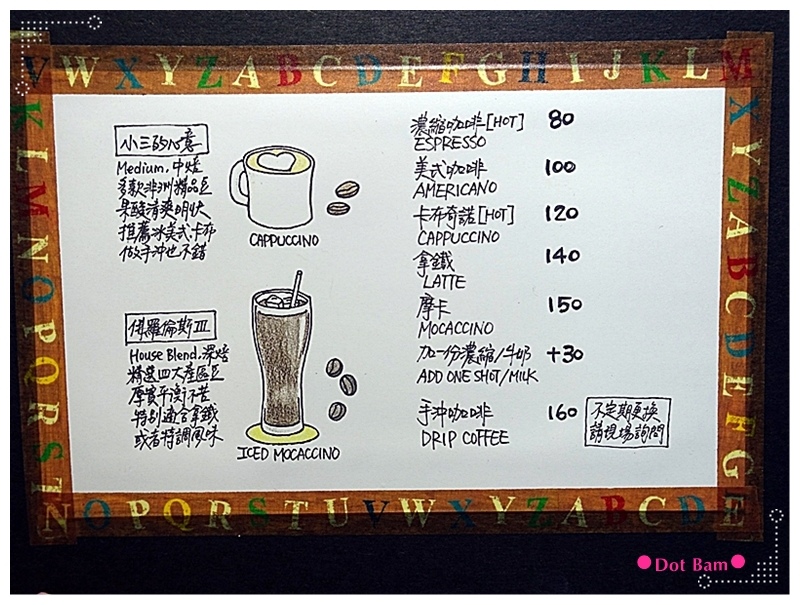 V W X Y Z A B C D E F G H I J K L M
K L M N O P Q R S T
X Y Z A B C D E F G
小三的心意
Medium.中焙
多款非洲精品豆
果酸清爽明快
推薦冰美式卡布
做手沖也不錯
CAPPUCCINO
佛羅倫斯Ⅲ
House Blend.深焙
精選四大產區豆
厚實平衡不苦
特別適合拿鐵
或者特調風味
ICED MOCACCINO
濃縮咖啡[HOT] 80
ESPRESSO
美式咖啡 100
AMERICANO
卡布奇諾[HOT] 120
CAPPUCCINO
拿鐵 140
LATTE
摩卡 150
MOCACCINO
加一份濃縮/牛奶 +30
ADD ONE SHOT/MILK
手沖咖啡 160
DRIP COFFEE
不定期更換
請現場詢問
N O P Q R S T U V W X Y Z A B C D E
Dot Bam